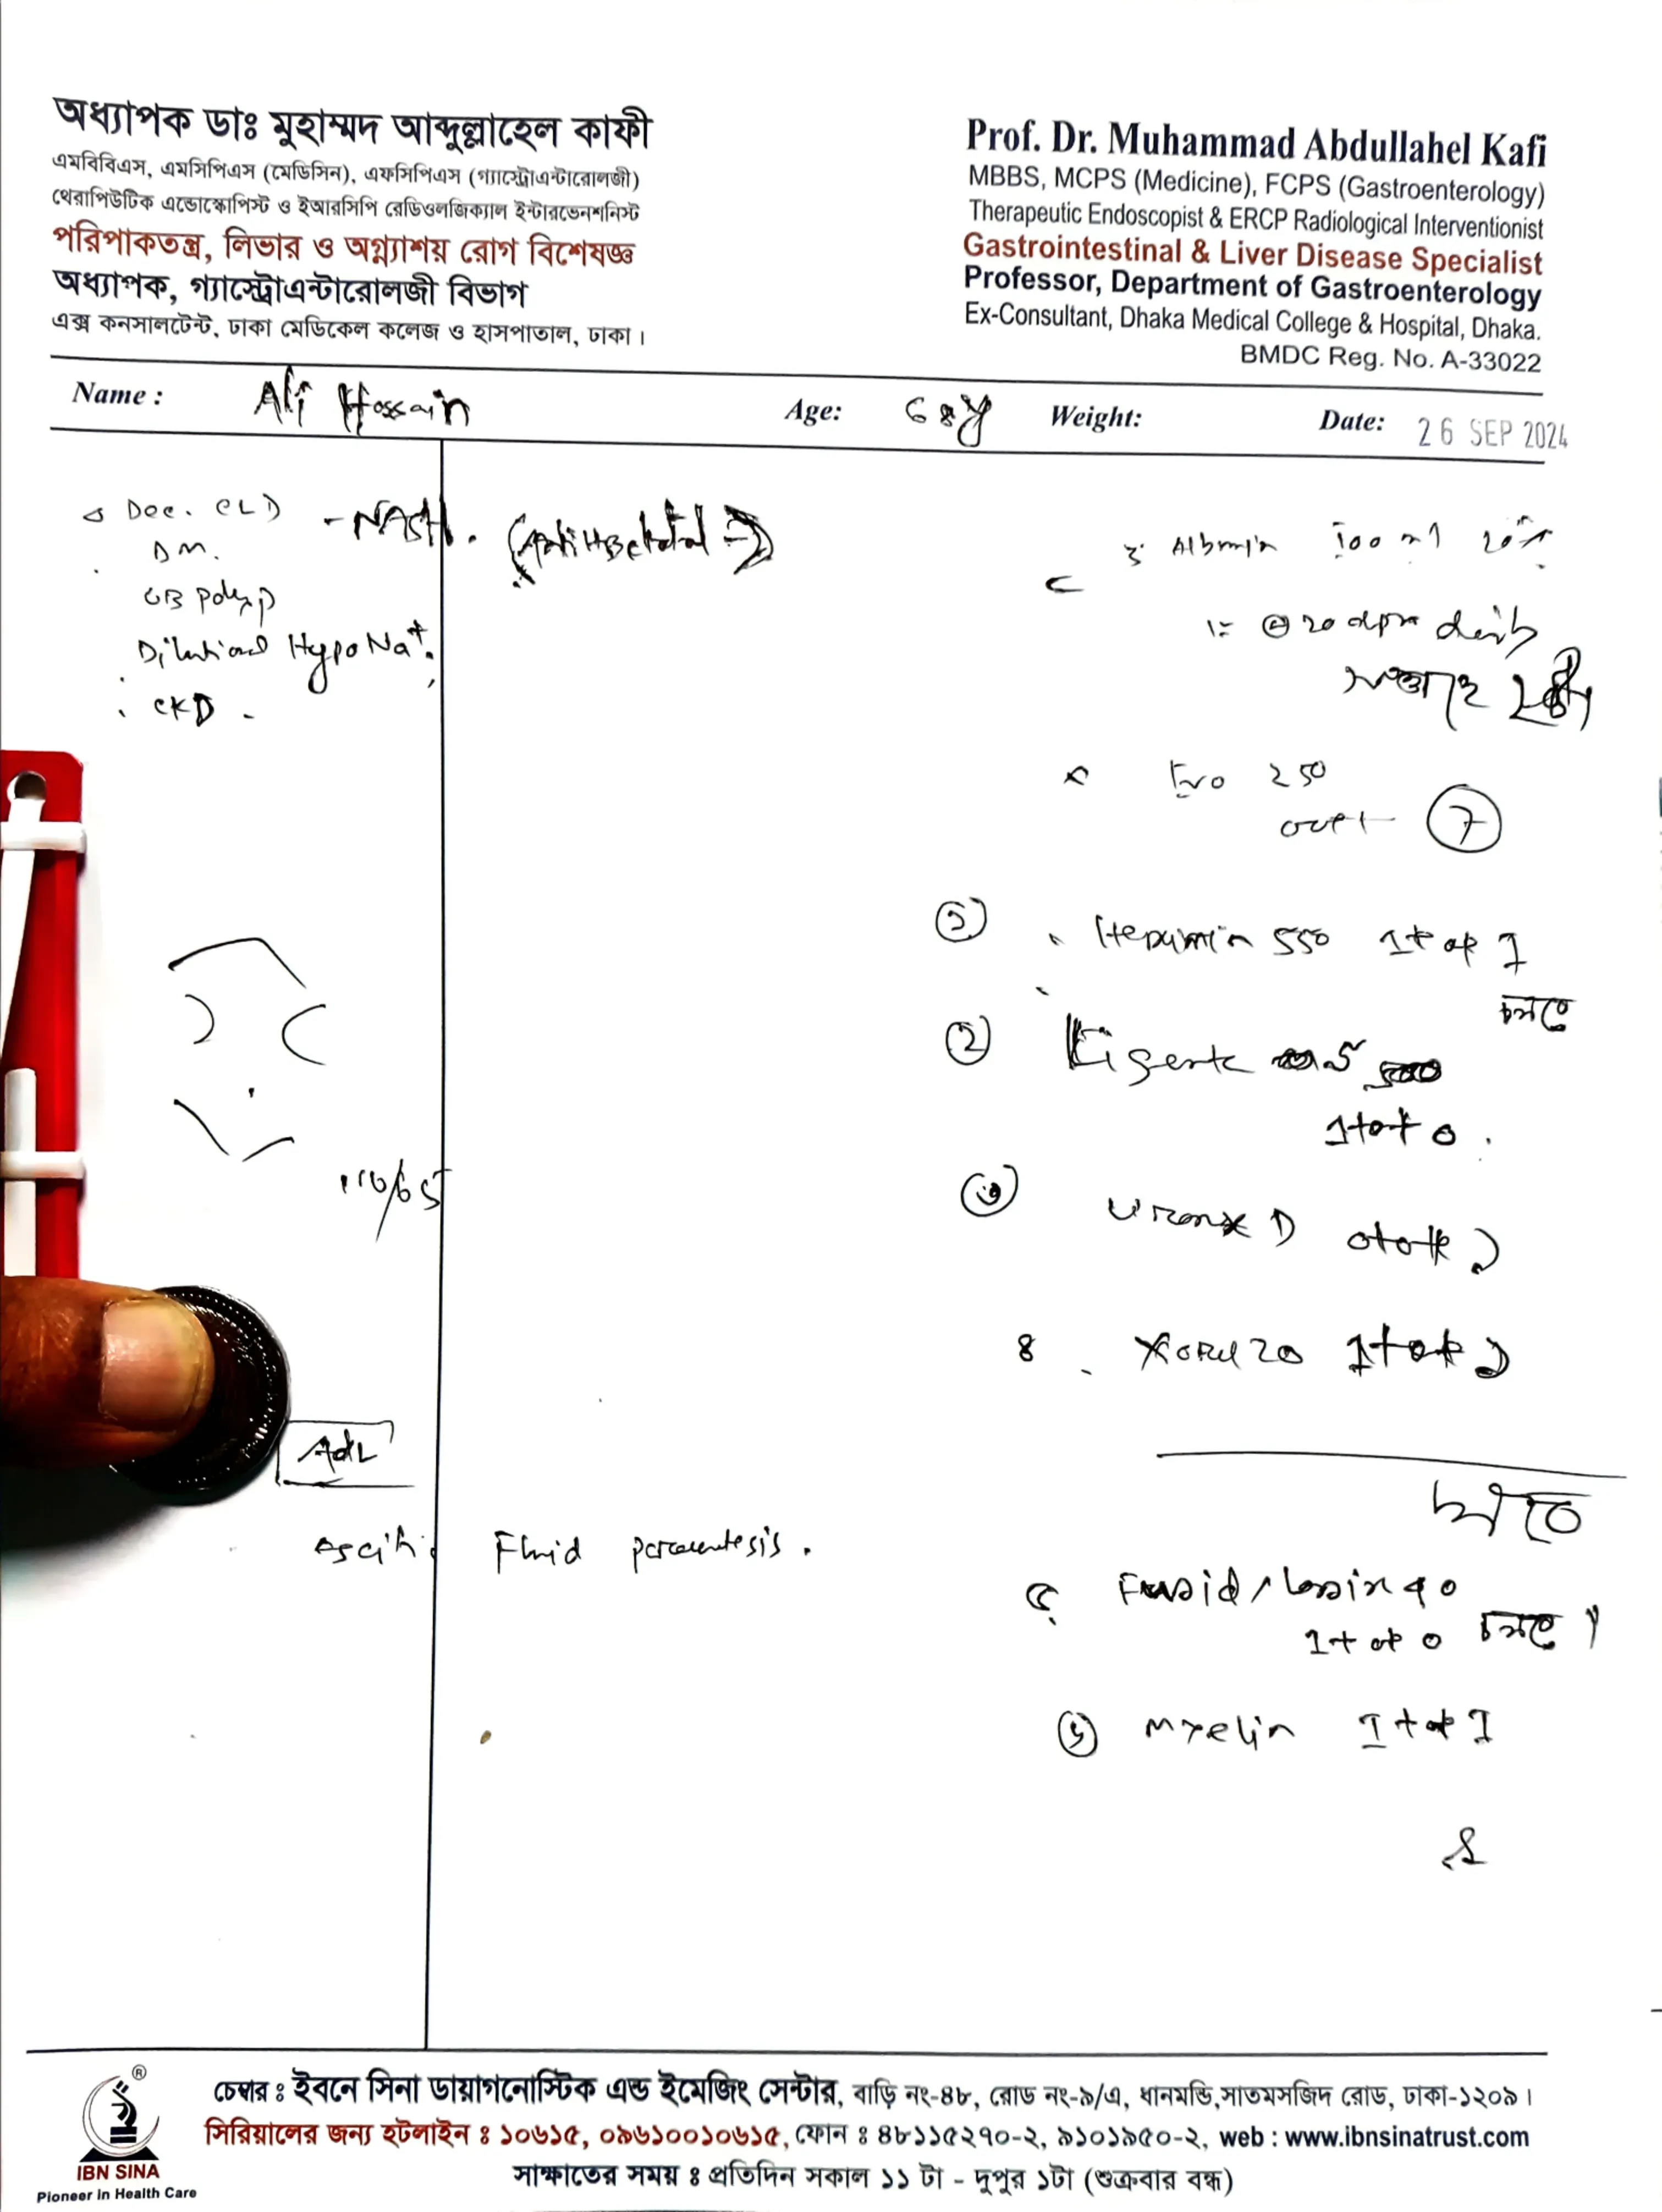 অধ্যাপক ডাঃ মুহাম্মদ আব্দুল্লাহেল কাফী
এমবিবিএস, এমসিপিএস (মেডিসিন), এফসিপিএস (গ্যাস্ট্রোএন্টারোলজী)
থেরাপিউটিক এন্ডোস্কোপিস্ট ও ইআরসিপি রেডিওলজিক্যাল ইন্টারভেনশনিস্ট
পরিপাকতন্ত্র, লিভার ও অগ্ন্যাশয় রোগ বিশেষজ্ঞ
অধ্যাপক, গ্যাস্ট্রোএন্টারোলজী বিভাগ
এক্স কনসালটেন্ট, ঢাকা মেডিকেল কলেজ ও হাসপাতাল, ঢাকা।
Prof. Dr. Muhammad Abdullahel Kafi
MBBS, MCPS (Medicine), FCPS (Gastroenterology)
Therapeutic Endoscopist & ERCP Radiological Interventionist
Gastrointestinal & Liver Disease Specialist
Professor, Department of Gastroenterology
Ex-Consultant, Dhaka Medical College & Hospital, Dhaka.
BMDC Reg. No. A-33022
Name : Ali Hossain Age: 68y Weight: Date: 26 SEP 2024
Dec. CLD - NASH.
DM.
GB polyp
Dilutional HypoNa+
CKD.
110/65
Adv
Ascitic Fluid paracentesis.
Albumin 100 ml 20%
20 dpm
সপ্তাহে
Evo 250
7
১ 550 1+0+1
চলবে
২
1+0+0.
৩ D 0+0+
৪ 20 1+0+
চলবে
৫ Fusid / Lasix 40
1+0+0 চলবে।
৬ Myelin 1+0+1
IBN SINA
Pioneer in Health Care
চেম্বার ঃ ইবনে সিনা ডায়াগনোস্টিক এন্ড ইমেজিং সেন্টার, বাড়ি নং-৪৮, রোড নং-৯/এ, ধানমন্ডি,সাতমসজিদ রোড, ঢাকা-১২০৯।
সিরিয়ালের জন্য হটলাইন ঃ ১০৬১৫, ০৯৬১০০১০৬১৫, ফোন ঃ ৪৮১১৫২৭০-২, ৯১০১৯৫০-২, web : www.ibnsinatrust.com
সাক্ষাতের সময় ঃ প্রতিদিন সকাল ১১ টা - দুপুর ১টা (শুক্রবার বন্ধ)